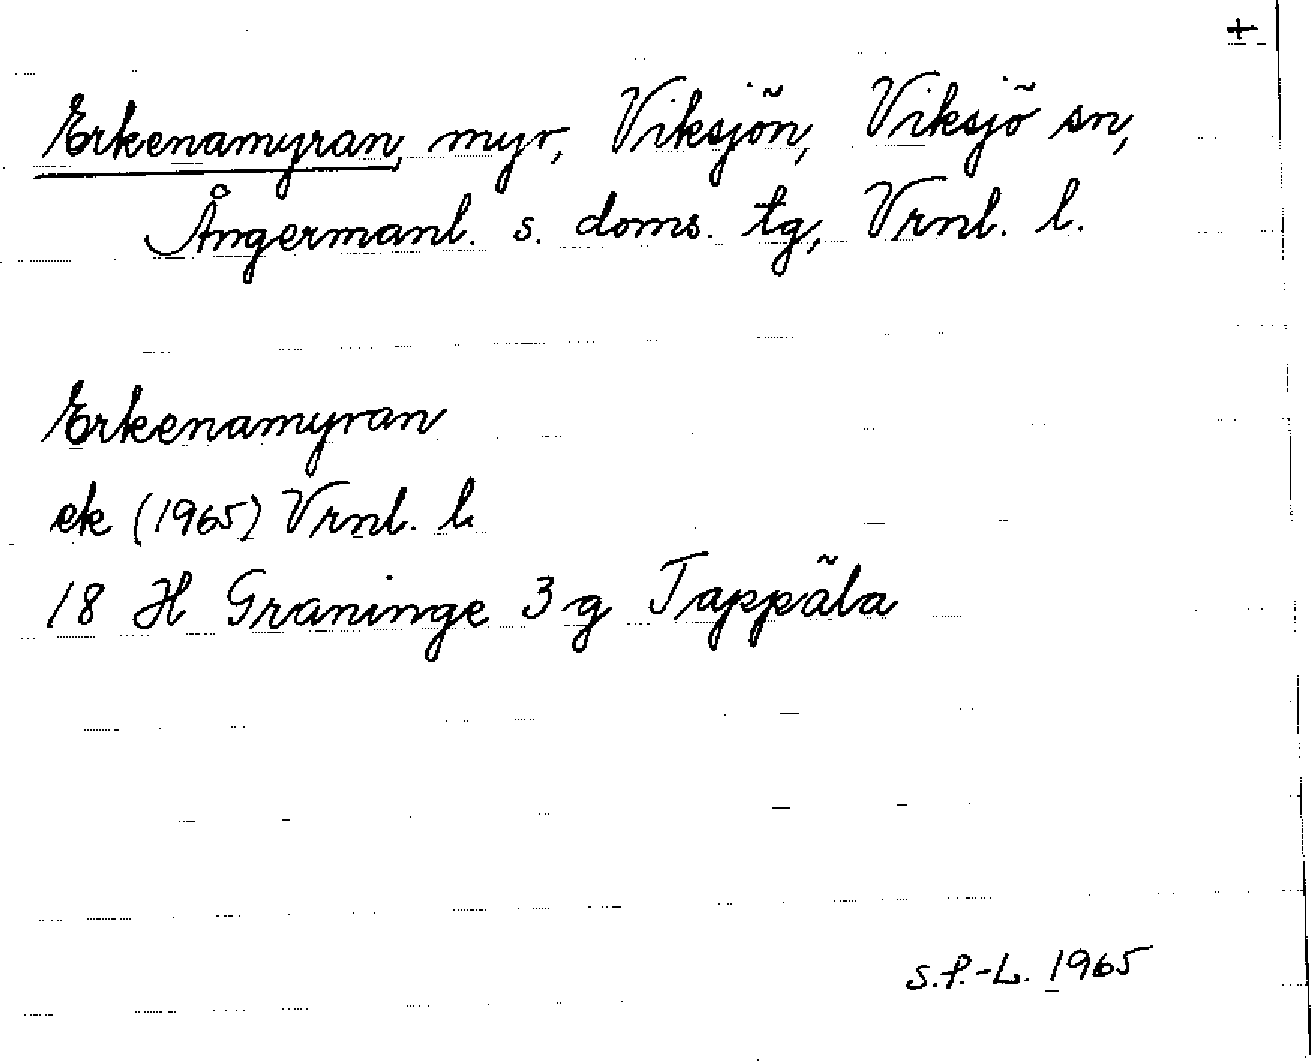 Erkenamyran, myr, Viksjön, Viksjö sn,
Ångermanl. s. doms. tg, Vrnl. l.
Erkenamyran
ek (1965) Vrnl. l.
18 H Graninge 3 g Tappäla
S.F.-L. 1965